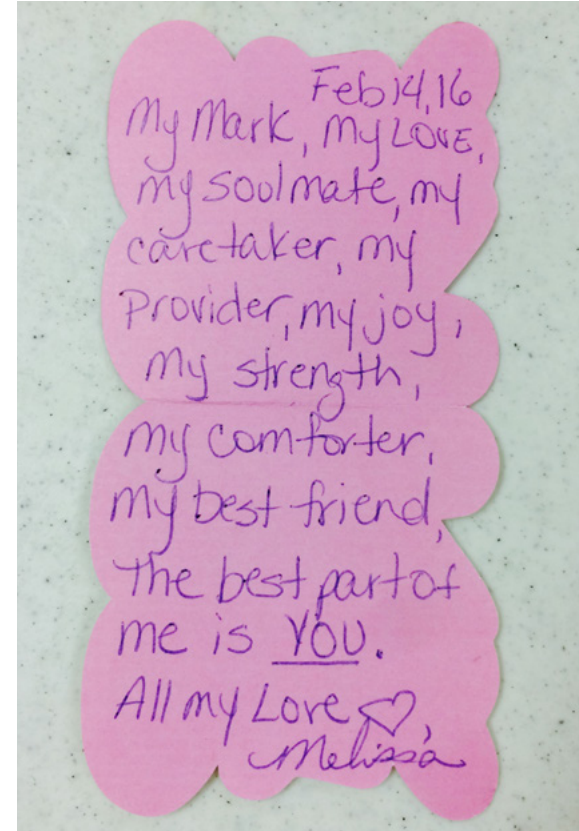 Feb 14, 16
My Mark, my LOVE,
my soulmate, my
caretaker, my
Provider, my joy,
my strength,
my comforter,
my best friend,
The best part of
me is YOU.
All my Love ♡,
Melissa